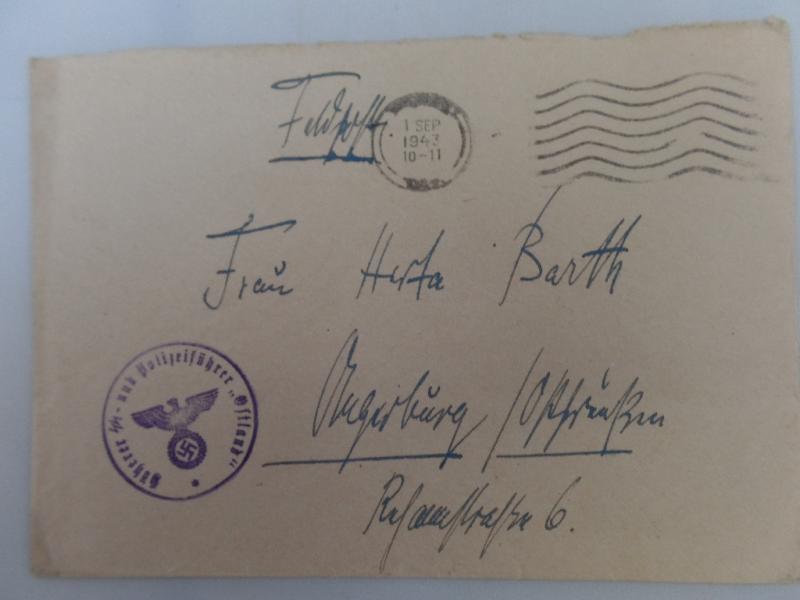 Feldpost
1 SEP
1943
10-11
Frau Herta Barth
Höherer SS- und Polizeiführer „Ostland"
Angerburg /Ostpreußen
6.